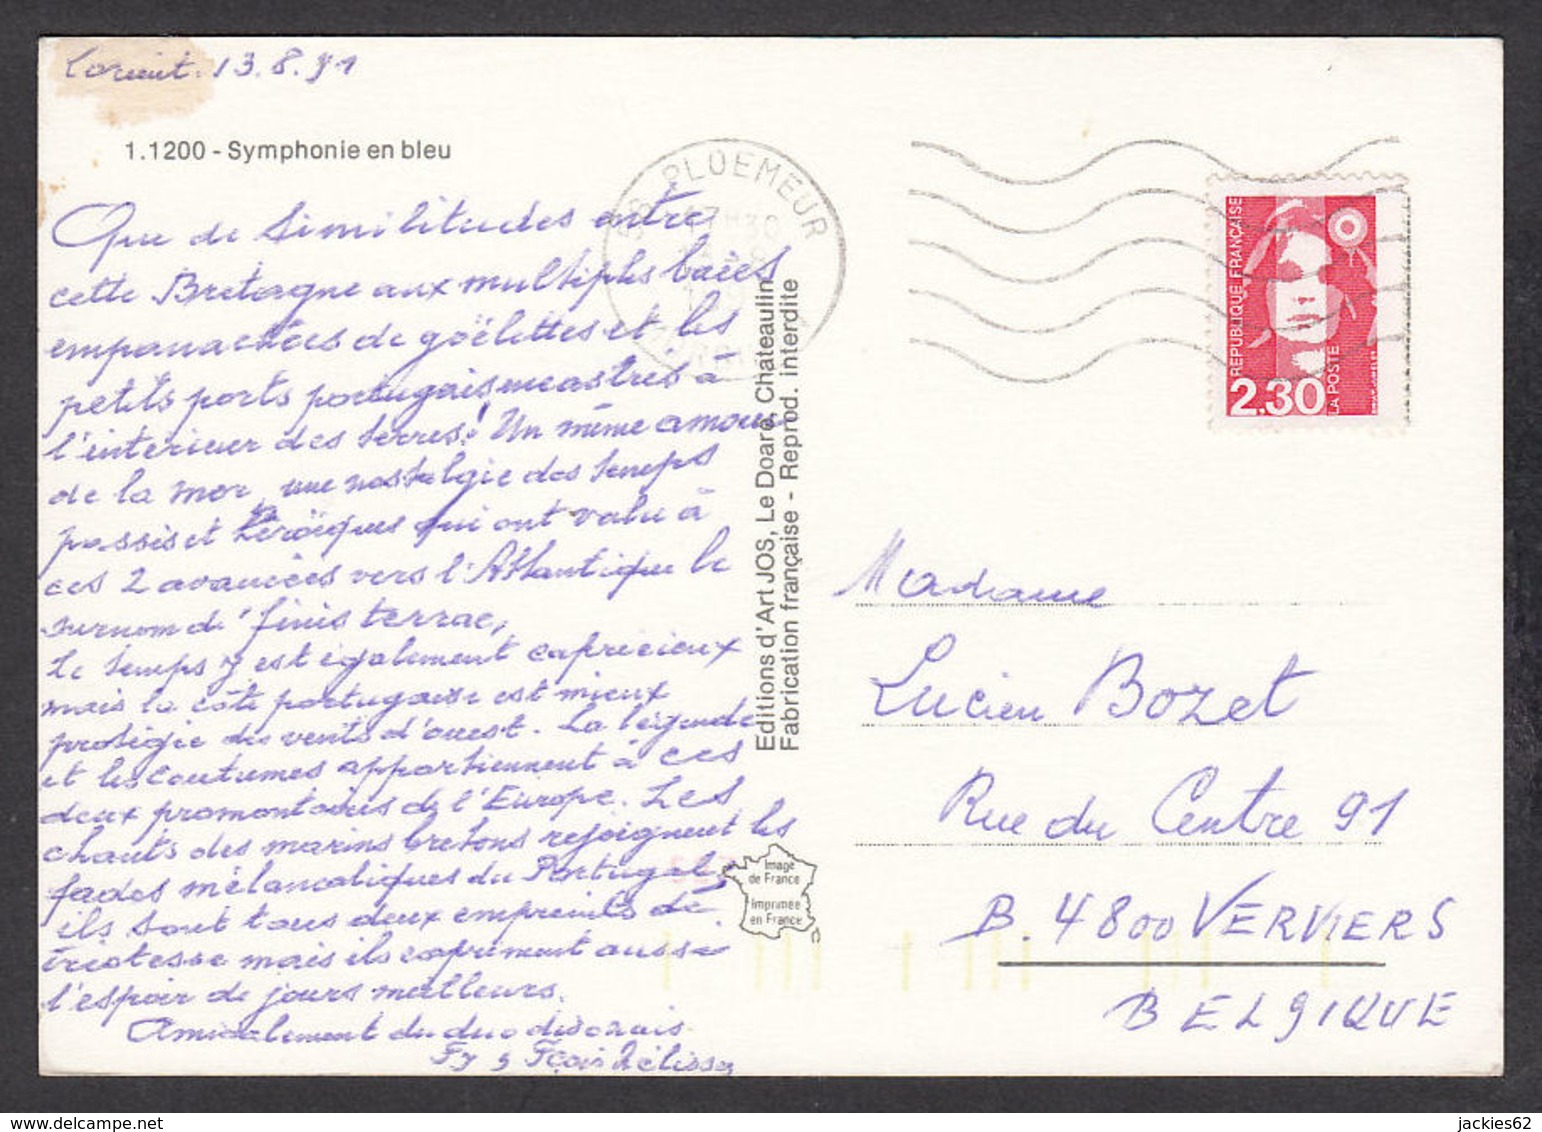 Lorient. 13.8.91
1.1200 - Symphonie en bleu
Que de similitudes entre
cette Bretagne aux multiples baies
empanachées de goëlettes et les
petits ports portugais encastrés à
l'intérieur des terres! Un même amour
de la mer, une nostalgie des temps
passés et héroïques qui ont valu à
ces 2 avancées vers l'Atlantique le
surnom de "finis terrae,
Le temps y est également capricieux
mais la côte portugaise est mieux
protégée des vents d'ouest. La légende
et les coutumes appartiennent à ces
deux promontoires de l'Europe. Les
chants des marins bretons rejoignent les
fados mélancoliques du Portugal,
ils sont tous deux empreints de
tristesse mais ils expriment aussi
l'espoir de jours meilleurs.
Amicalement du duo
PLOEMEUR
17H30
Editions d'Art JOS, Le Doaré, Châteaulin
Fabrication française - Reprod. interdite
Image
de France
Imprimée
en France
REPUBLIQUE FRANÇAISE
2.30
LA POSTE
Madame
Lucien Bozet
Rue du Centre 91
B. 4800 VERVIERS
BELGIQUE
jackies62